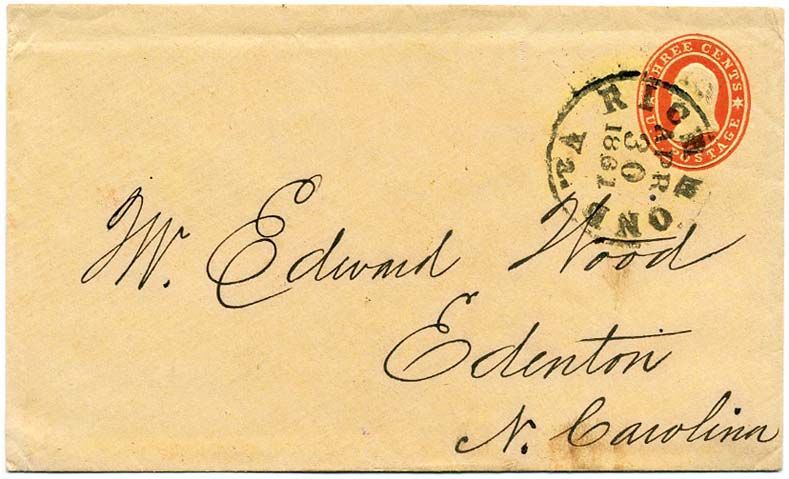 THREE CENTS
U.S. POSTAGE
RICHMOND VA.
APR.
30
1861
Mr. Edward Wood
Edenton
N. Carolina